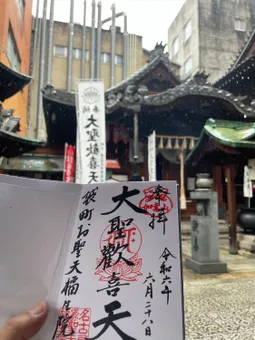 奉納
大聖歓喜天
奉拝
大聖歓喜天
令和六年
六月二十八日
袋町お聖天福生院